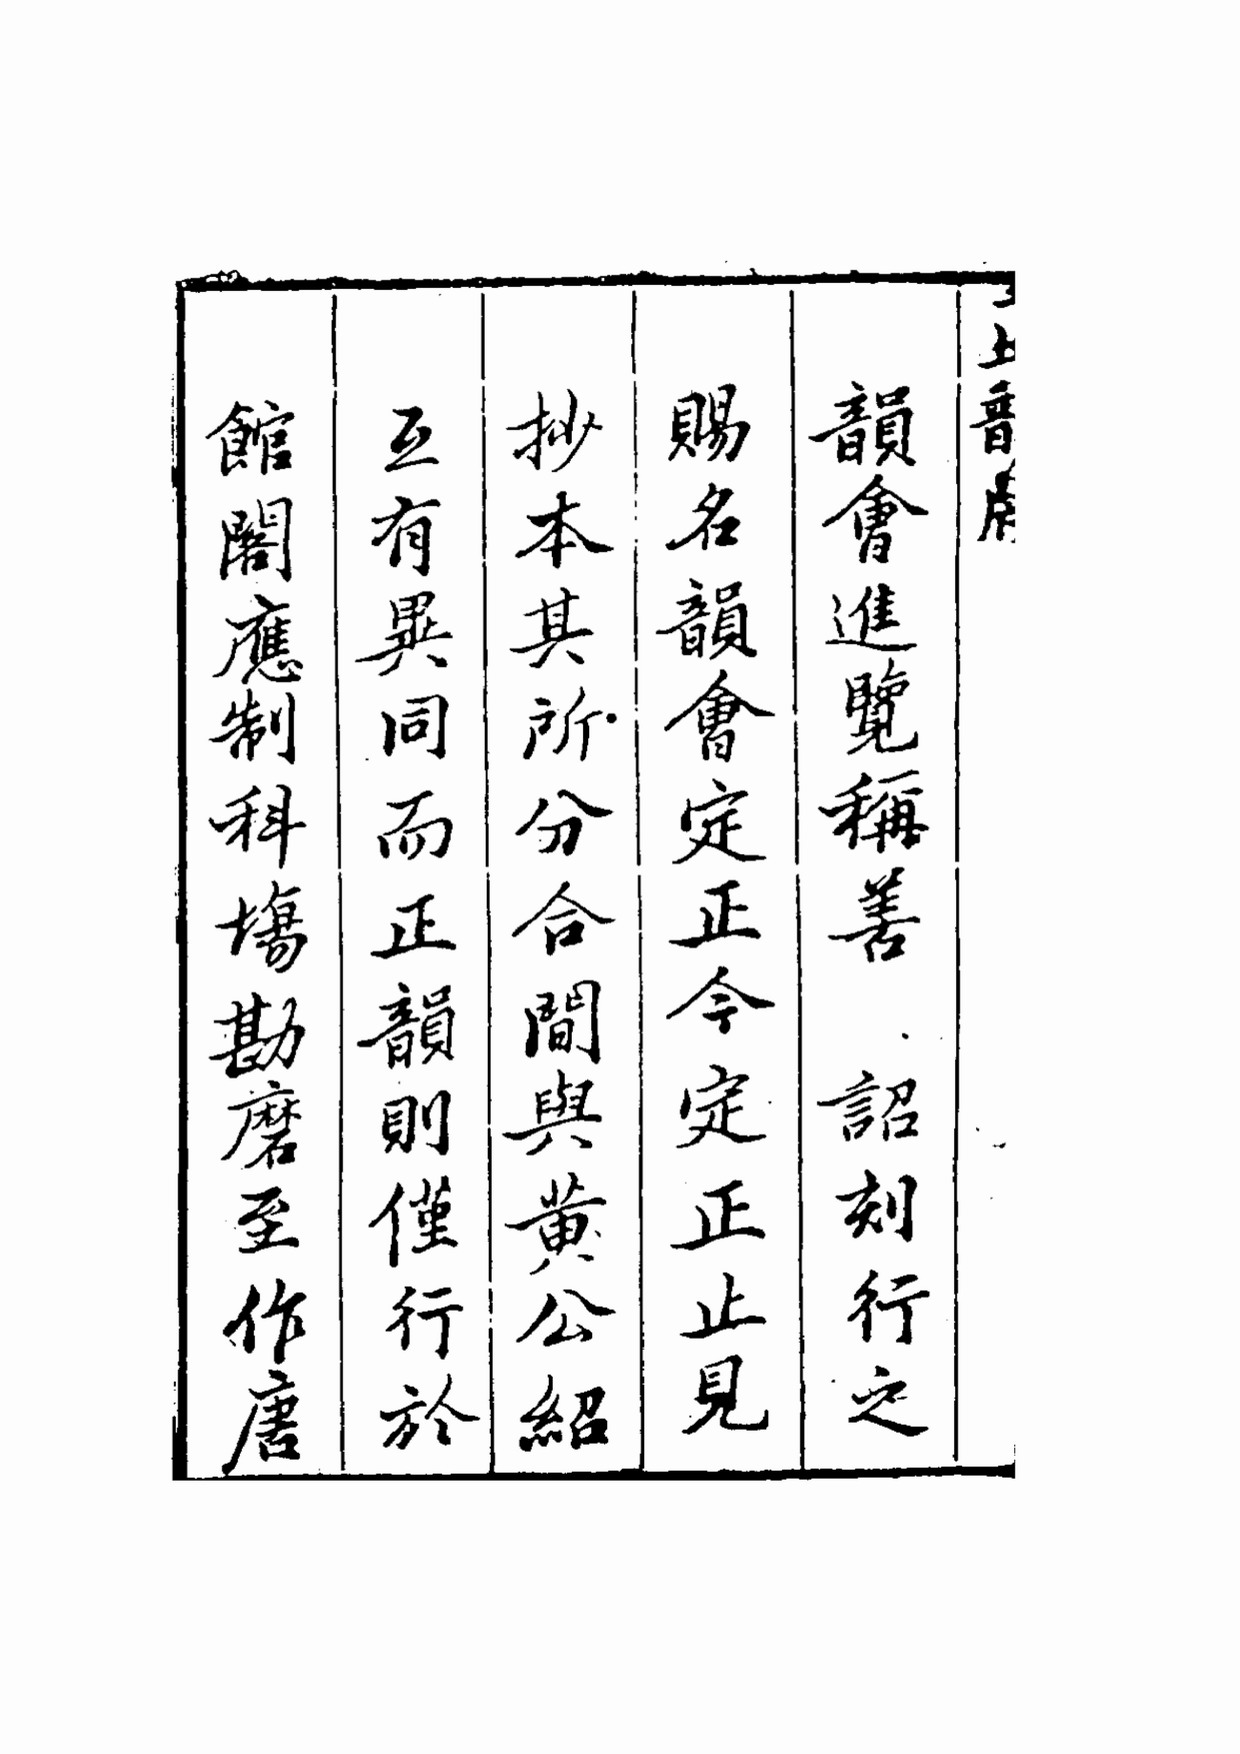 韻會進覽稱善　詔刻行之
賜名韻會定正今定正止見
抄本其所分合間與黄公紹
互有異同而正韻則僅行於
館閣應制科塲勘磨至作唐